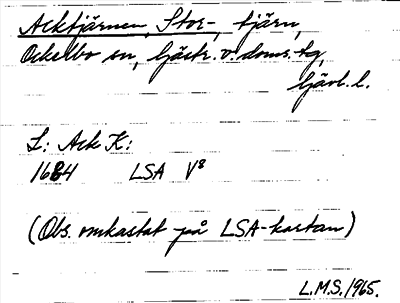 Acktjärnen, Stor-, tjärn,
Ockelbo sn, Gästr. v. doms. tg,
Gävl. l.
L: Ack K:
1684 LSA V8
(Obs. omkastat på LSA-kartan)
L.M.S. 1965.